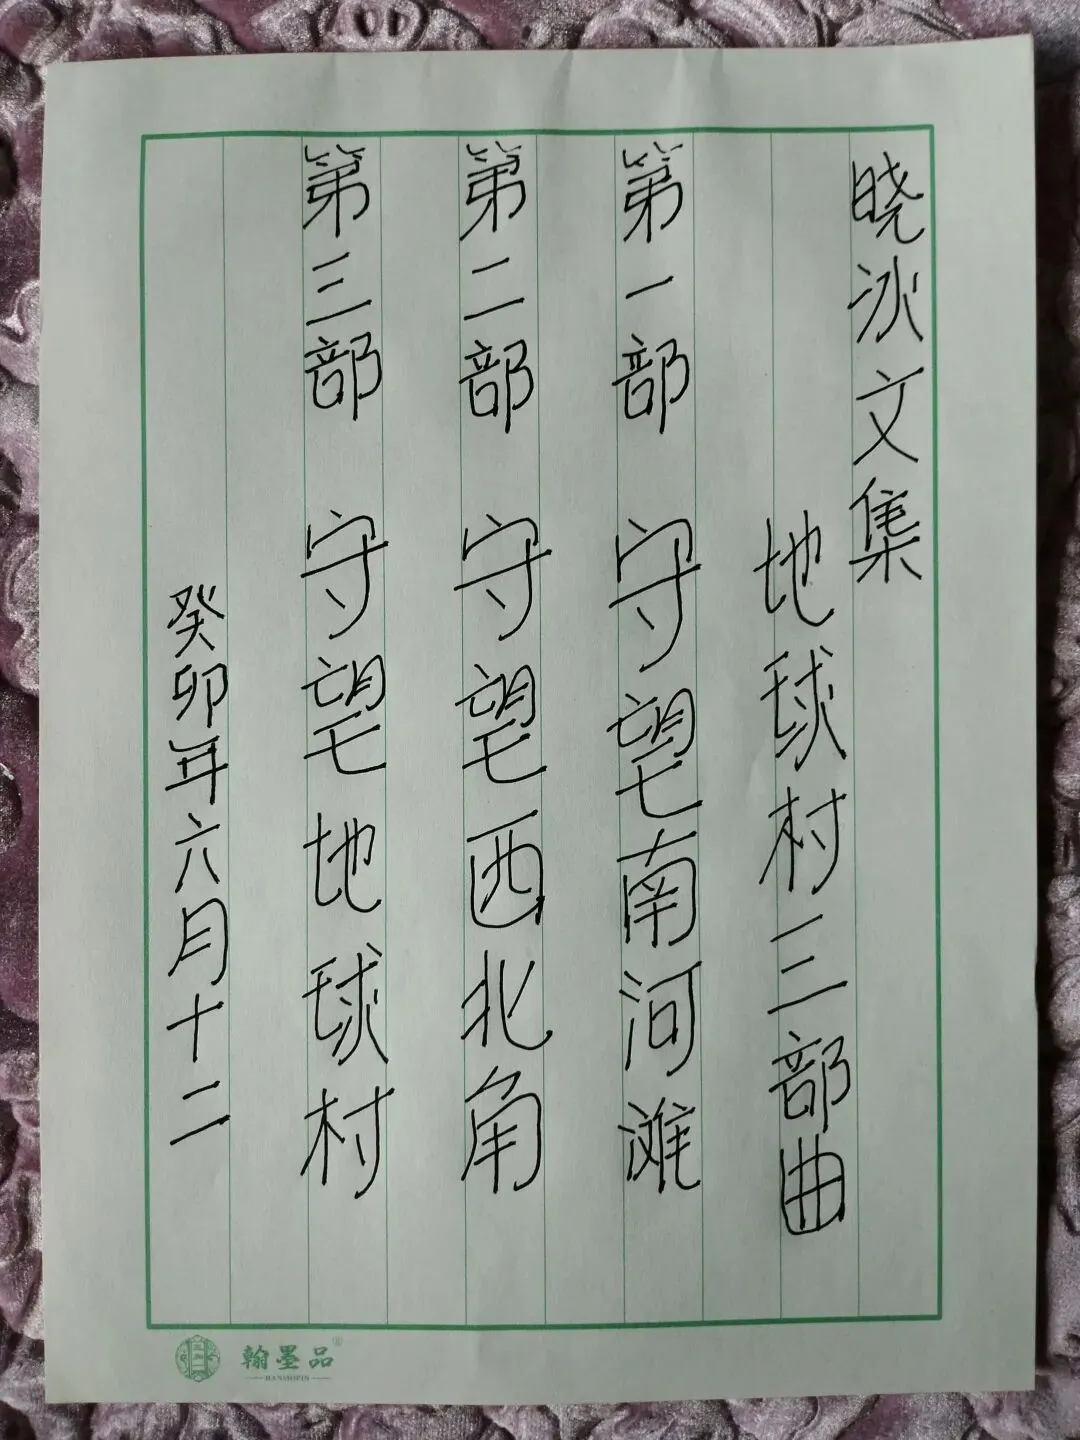 晓冰文集
地球村三部曲
第一部 守望南河滩
第二部 守望西北角
第三部 守望地球村
癸卯年六月十二
翰墨品®
HANMOPIN